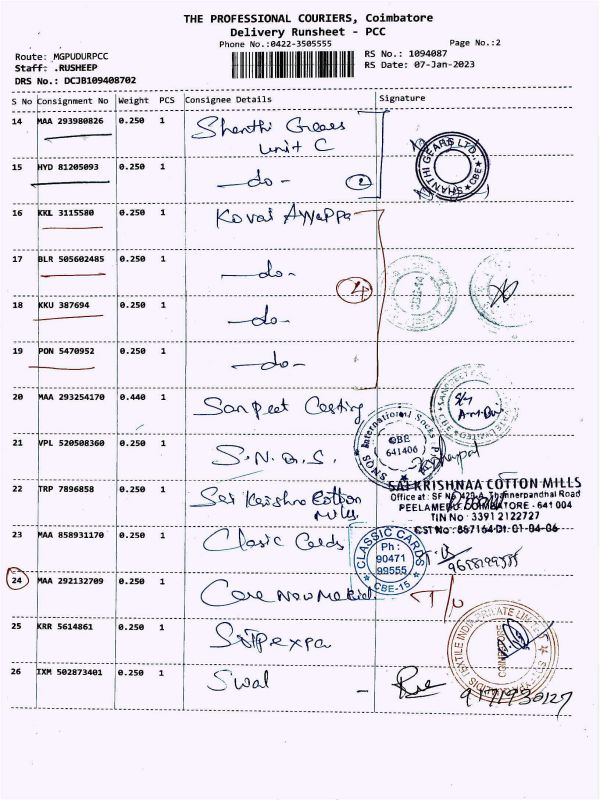 THE PROFESSIONAL COURIERS, Coimbatore
Delivery Runsheet - PCC
Phone No.:0422-3505555
Page No.:2
Route: MGPUDURPCC
Staff: .RUSHEEP
DRS No.: DCJB109408702
RS No.: 1094087
RS Date: 07-Jan-2023
S No Consignment No Weight PCS Consignee Details Signature
14 MAA 293980826 0.250 1 Shanthi Gears
Unit C
SHANTHI GEARS LTD., CBE
15 HYD 81205093 0.250 1 -do- 2
16 KKL 3115580 0.250 1 Kovai Ayyappa
17 BLR 505602485 0.250 1 -do-
4
18 KKU 387694 0.250 1 -do-
19 PON 5470952 0.250 1 -do-
20 MAA 293254170 0.440 1 Sanpeet Casting
21 VPL 520508360 0.250 1 S.N.Q.S.
SNQS International Socks
CBE
641406
22 TRP 7896858 0.250 1 Sai Krishna Cotton
Mills
SAI KRISHNAA COTTON MILLS
Office at : SF No 429-A, Thannerpandhal Road
PEELAMEDU, COIMBATORE - 641 004
TIN No : 33912122727
CST No : 867164 Dt. 01-04-06
23 MAA 858931170 0.250 1 Clasic Cards
CLASSIC CARDS
Ph :
90471
99555
CBE-15
24 MAA 292132709 0.250 1
25 KRR 5614861 0.250 1
26 IXM 502873401 0.250 1 Swal